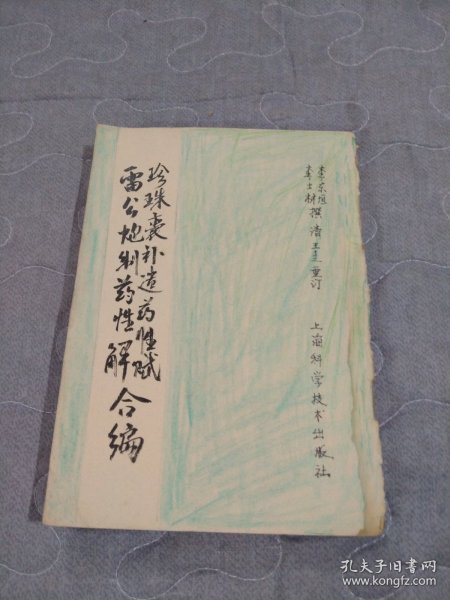 李东垣
李士材 撰 清王重订 上海科学技术出版社
珍珠囊补遗药性赋
雷公炮制药性解 合编
孔夫子旧书网
www.kongfz.com